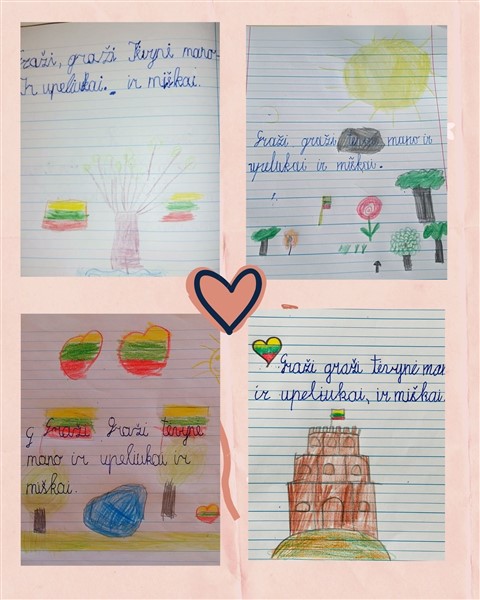 Graži, graži Tėvynė mano
Ir upeliukai. ir miškai.
Graži graži mano ir
upeliukai ir miškai.
G Graži Graži tėvynė
mano ir upeliukai ir
miškai.
Graži graži tėvynė man
ir upeliukai, ir miškai